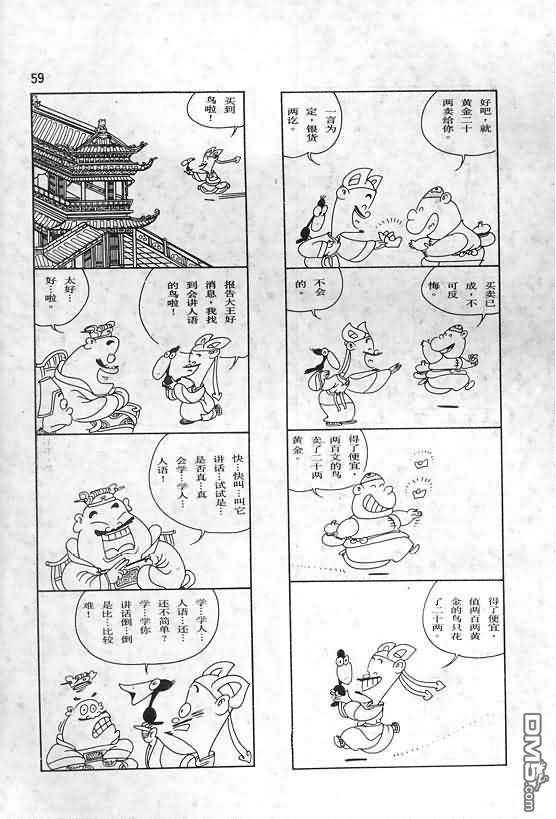 59
好吧，就
黄金二十
两卖给你。
一言为
定，银货
两讫。
买卖已
成，不
可反
悔。
不会
的。
得了便宜，
两百文的鸟
卖了二十两
黄金。
得了便宜，
值两百两黄
金的鸟只花
了二十两。
买到
鸟啦！
报告大王好
消息，我找
到会讲人语
的鸟啦！
太好…
好…啦。
快…快叫…叫它
讲话…试试是…
是否真…真
会学…学人…
人语！
学…学人…
人语…还…
还不简单？
学…学你
讲话倒…倒
是比…比较
难！
DM5.com